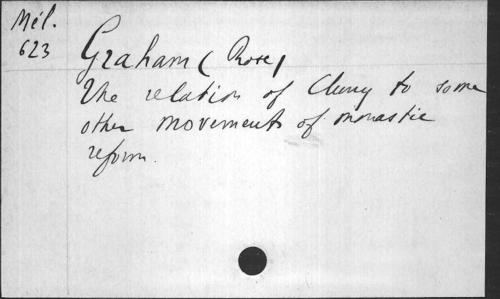 Mél.
623
Graham (Rose)
The relation of Cluny to some
other movements of monastic
reform.